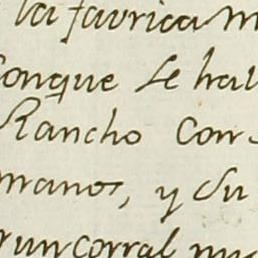 la fabrica
conque se hal
Rancho con
manos, y su
un corral